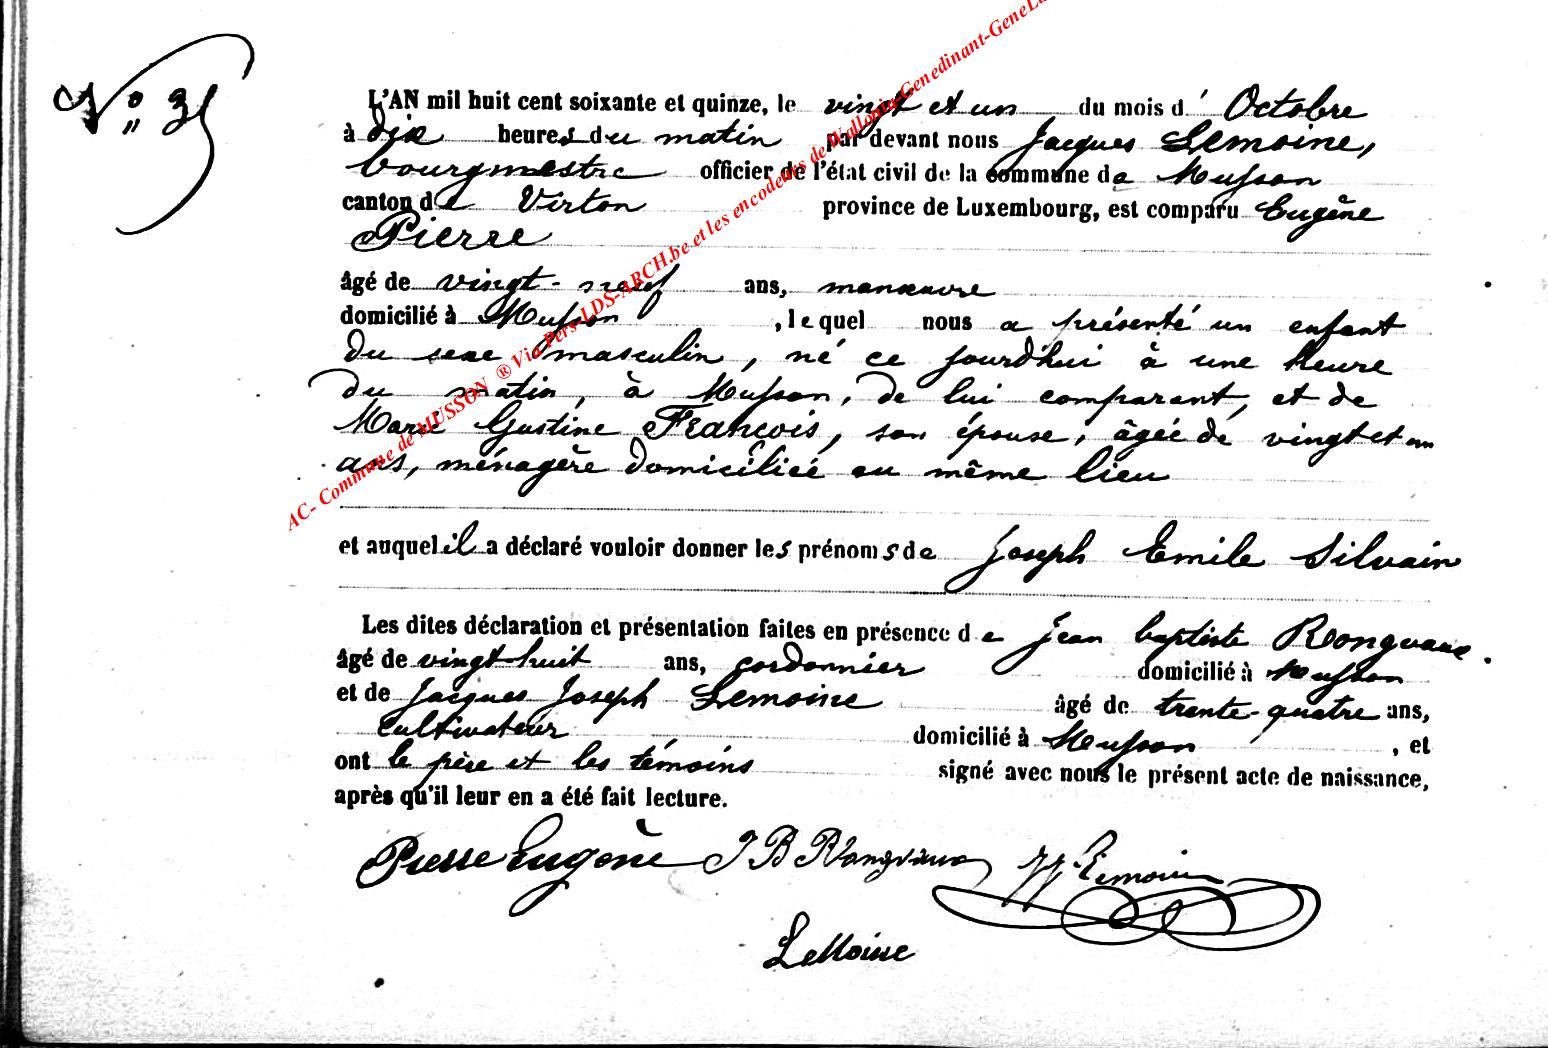 N° 35
L'AN mil huit cent soixante et quinze, le vingt et un du mois d' Octobre
à dix heures du matin par devant nous Jacques Lemoine,
bourgmestre officier de l'état civil de la commune de Musson
canton de Virton province de Luxembourg, est comparu Eugène
Pierre
âgé de vingt-neuf ans, manœuvre
domicilié à Musson , lequel nous a présenté un enfant
du sexe masculin, né ce jourd'hui à une heure
du matin, à Musson, de lui comparant, et de
Marie Justine François, son épouse, âgée de vingt et un
ans, ménagère domiciliée au même lieu
et auquel il a déclaré vouloir donner les prénoms de Joseph Emile Silvain
Les dites déclaration et présentation faites en présence de Jean baptiste Rongvaux
âgé de vingt-huit ans, cordonnier domicilié à Musson
et de Jacques Joseph Lemoine âgé de trente-quatre ans,
cultivateur domicilié à Musson , et
ont le père et les témoins signé avec nous le présent acte de naissance,
après qu'il leur en a été fait lecture.
Pierre Eugène J B Rongvaux JJ Lemoine
LeMoine
AC- Commune de MUSSON ® Via Pers-LDS-ARCH.be et les encodeurs de Wallonia-Genedinant-GeneLu